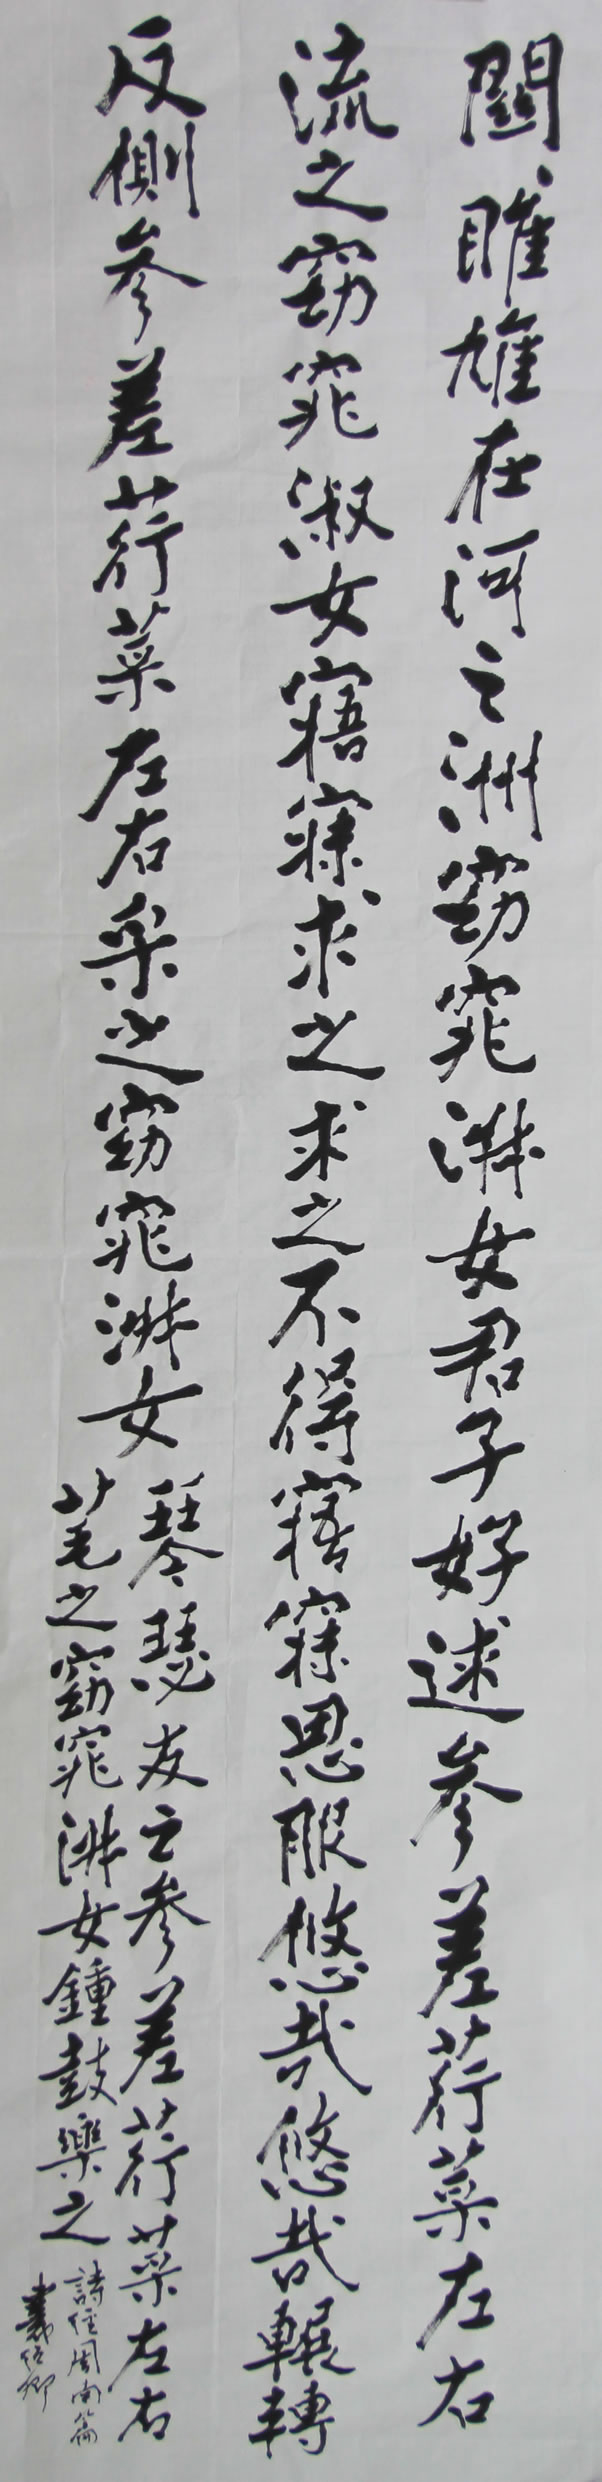 關、雎雄在河之洲窈窕淑女君子好逑參差荇菜左右
流之窈窕淑女寤寐求之求之不得寤寐思服悠哉悠哉輾轉
反側參差荇菜左右采之窈窕淑女
琴瑟友之參差荇菜左右
芼之窈窕淑女鍾鼓樂之
詩經周南篇